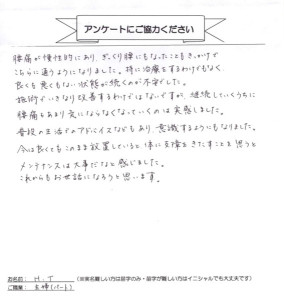 アンケートにご協力ください
腰痛が慢性的にあり、ぎっくり腰にもなったこともきっかけで
こちらに通うようになりました。特に治療をするわけでもなく
良くも悪くもない状態が続くのが不安でした。
施術でいきなり改善するわけではないですが、継続していくうちに
腰痛もあまり気にならなくなっていくのは実感しました。
普段の生活でアドバイスなどもあり、意識するようにもなりました。
今は良くてもこのまま放置していると体に支障をきたすことを思うと
メンテナンスは大事だなと感じました。
これからもお世話になろうと思います。
お名前： H.T （※実名難しい方は苗字のみ・苗字が難しい方はイニシャルでも大丈夫です）
ご職業： 主婦(パート)